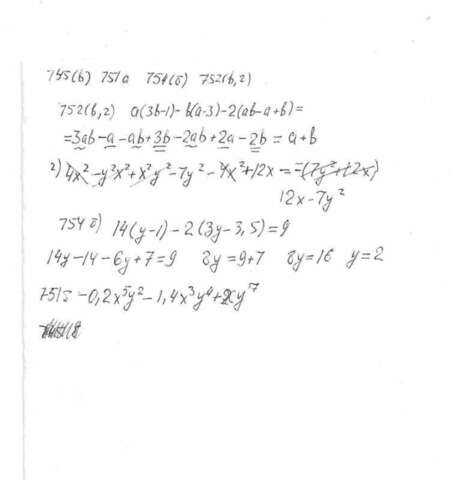 745(в) 751а 754(б) 752(в,г)
752(в,г) a(3b-1)-b(a-3)-2(ab-a+b)=
=3ab-a-ab+3b-2ab+2a-2b=a+b
г) 4x²-y²x²+x²y²-7y²-4x²+12x=-(7y²+12x)
12x-7y²
754 б) 14(y-1)-2(3y-3,5)=9
14y-14-6y+7=9 8y=9+7 8y=16 y=2
-0,2x⁵y²-1,4x³y⁴+2xy⁷